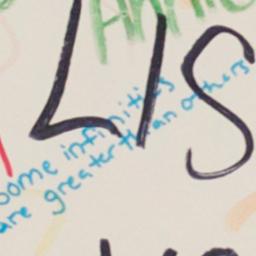 LIS
some infinities
are greater than others